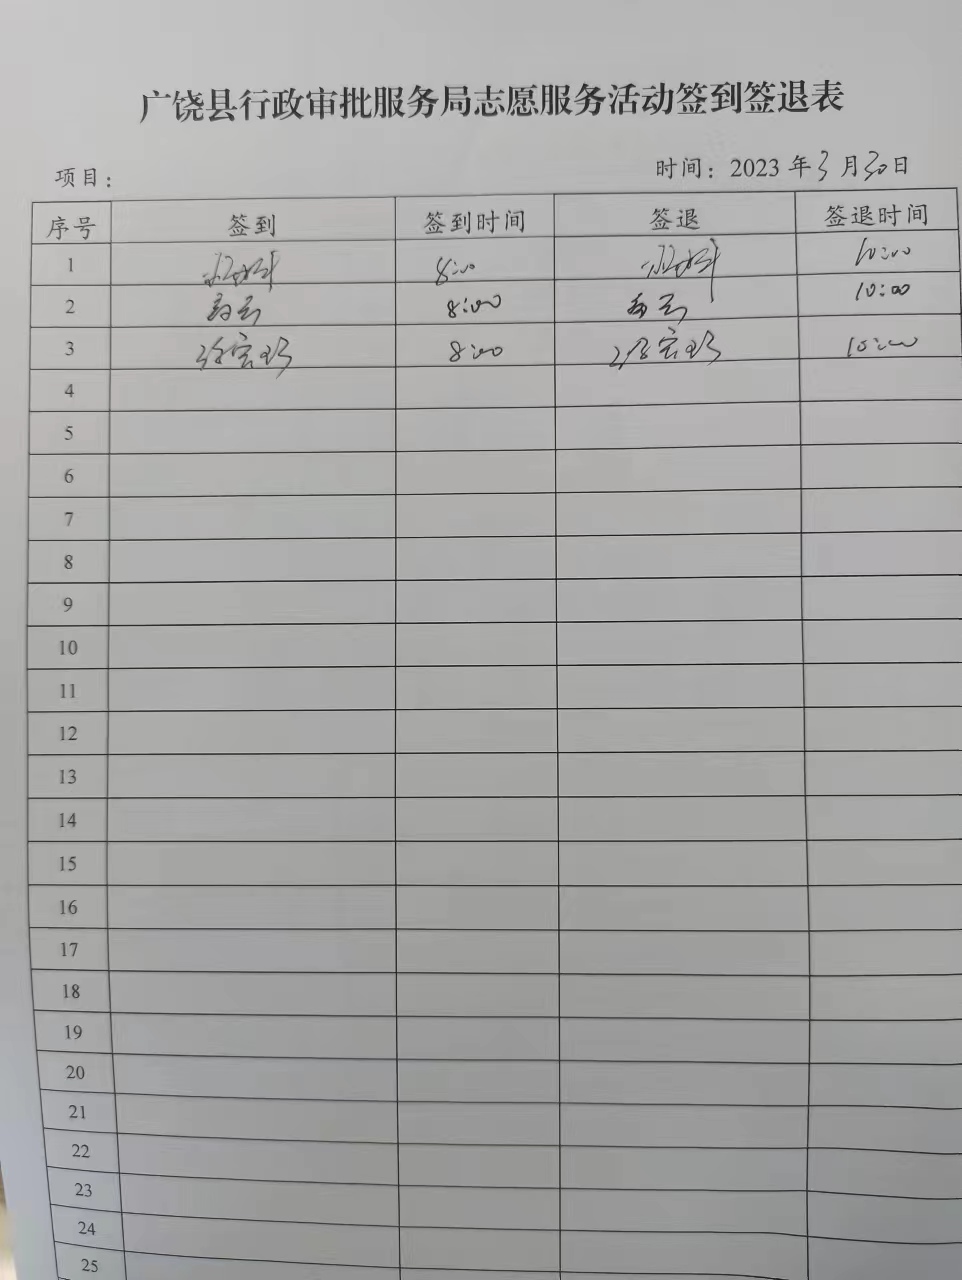 广饶县行政审批服务局志愿服务活动签到签退表
项目：
时间：2023年3月30日
序号 签到 签到时间 签退 签退时间
1 8:00 10:00
2 8:00 10:00
3 8:00 10:00
4
5
6
7
8
9
10
11
12
13
14
15
16
17
18
19
20
21
22
23
24
25